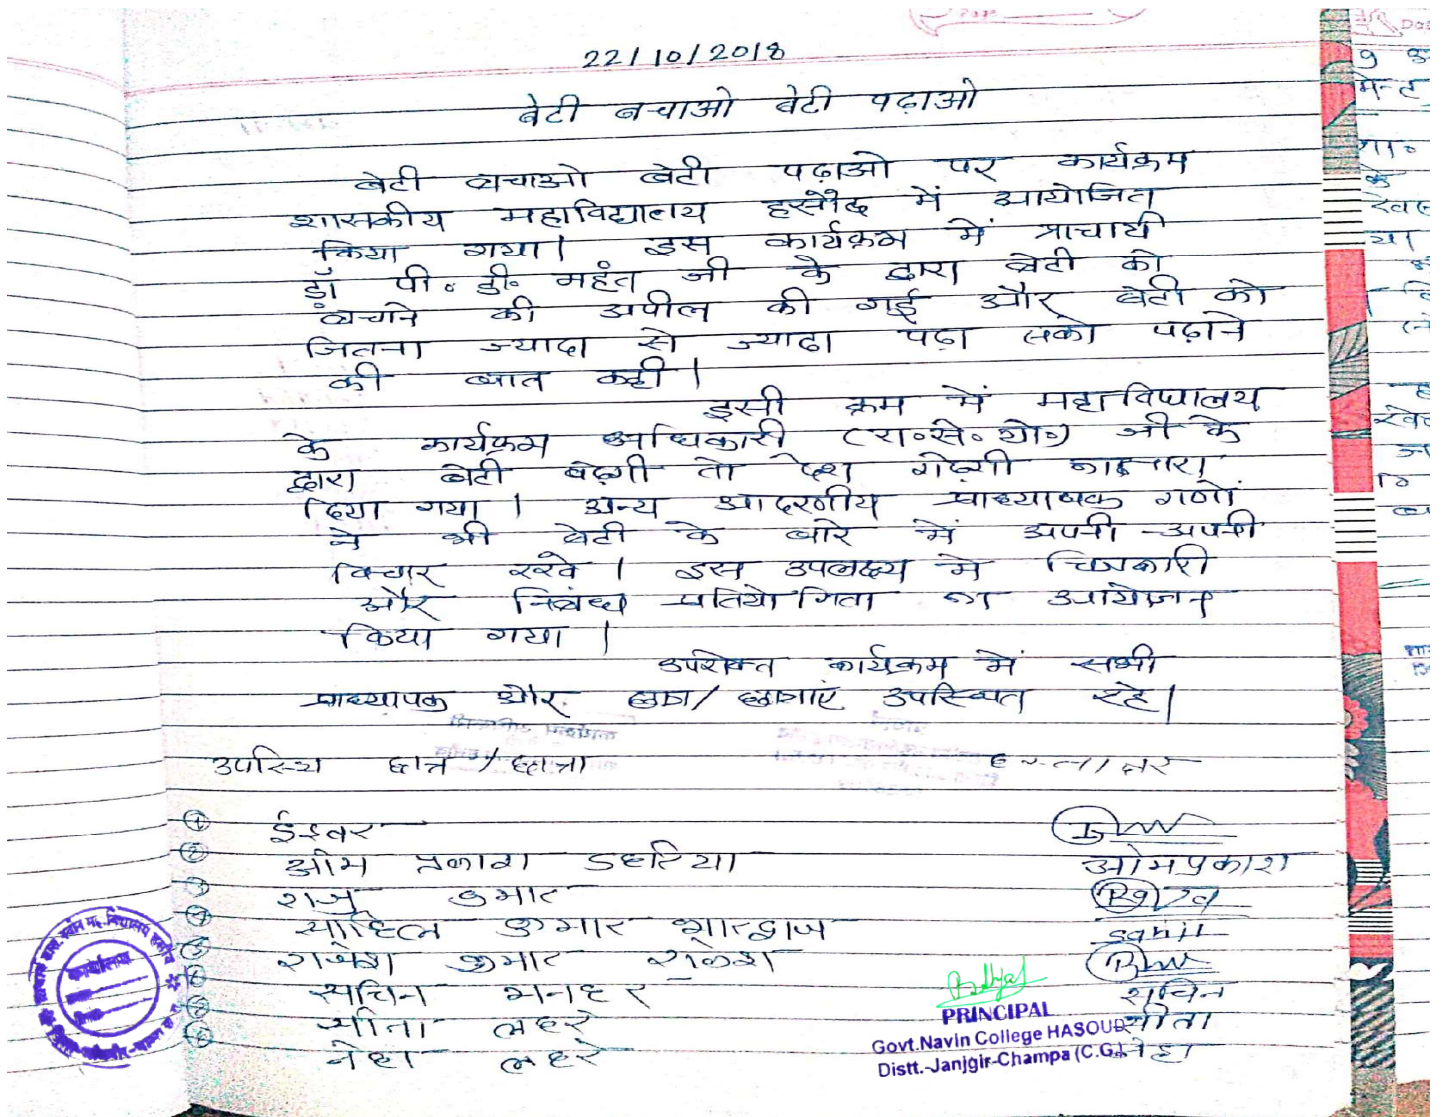 22/10/2018
बेटी बचाओ बेटी पढ़ाओ
बेटी बचाओ बेटी पढ़ाओ पर कार्यक्रम
शासकीय महाविद्यालय हसौद में आयोजित
किया गया। इस कार्यक्रम में प्राचार्य
डॉ पी. डी. महंत जी के द्वारा बेटी को
बचाने की अपील की गई और बेटी को
जितना ज्यादा से ज्यादा पढ़ा सको पढ़ाने
की बात कही।
इसी क्रम में महाविद्यालय
के कार्यक्रम अधिकारी (रा०से०यो०) जी के
द्वारा बेटी बढ़ेगी तो देश का नारा
दिया गया। अन्य आदरणीय प्राध्यापक गणों
ने भी बेटी के बारे में अपनी-अपनी
विचार रखे। इस उपलक्ष्य में चित्रकारी
और निबंध प्रतियोगिता का आयोजन
किया गया।
उपरोक्त कार्यक्रम में सभी
प्राध्यापक और छात्र/छात्राएं उपस्थित रहे।
उपस्थि छात्र/छात्रा हस्ताक्षर
① ईश्वर
② ओम प्रकाश डहरिया ओमप्रकाश
राजु कुमार
④ साहिल कुमार भारद्वाज Sahil
राजेश कुमार
सचिन मनहर सचिन
गीता लहरे गीता
नेहा लहरे नेहा
PRINCIPAL
Govt.Navin College HASOUD
Distt.-Janjgir-Champa (C.G.)
कार्यालय